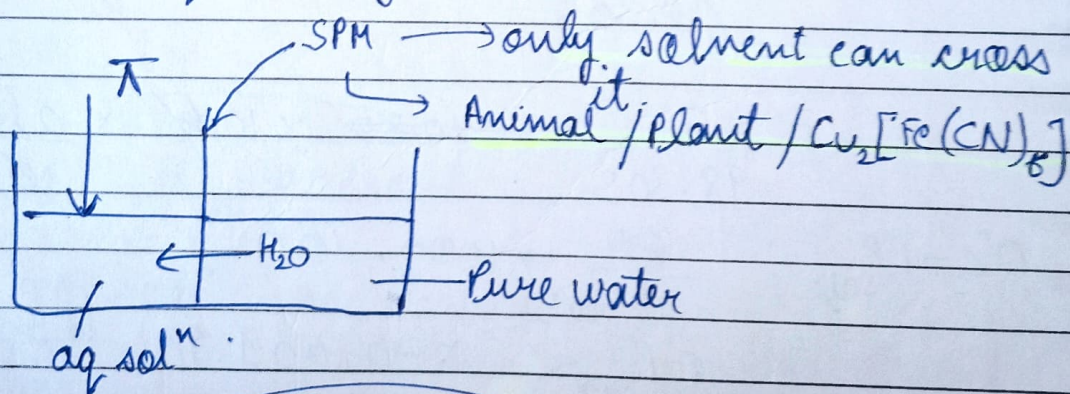 SPM → only solvent can cross
it.
π
Animal / Plant / Cu₂[Fe(CN)₆]
← H₂O
Pure water
aq solⁿ.